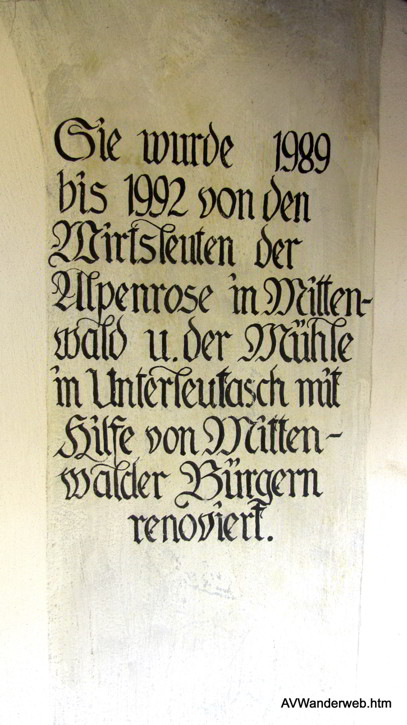 Sie wurde 1989
bis 1992 von den
Wirtsleuten der
Alpenrose in Mitten-
wald u. der Mühle
in Unterleutasch mit
Hilfe von Mitten-
walder Bürgern
renoviert.
AVWanderweb.htm